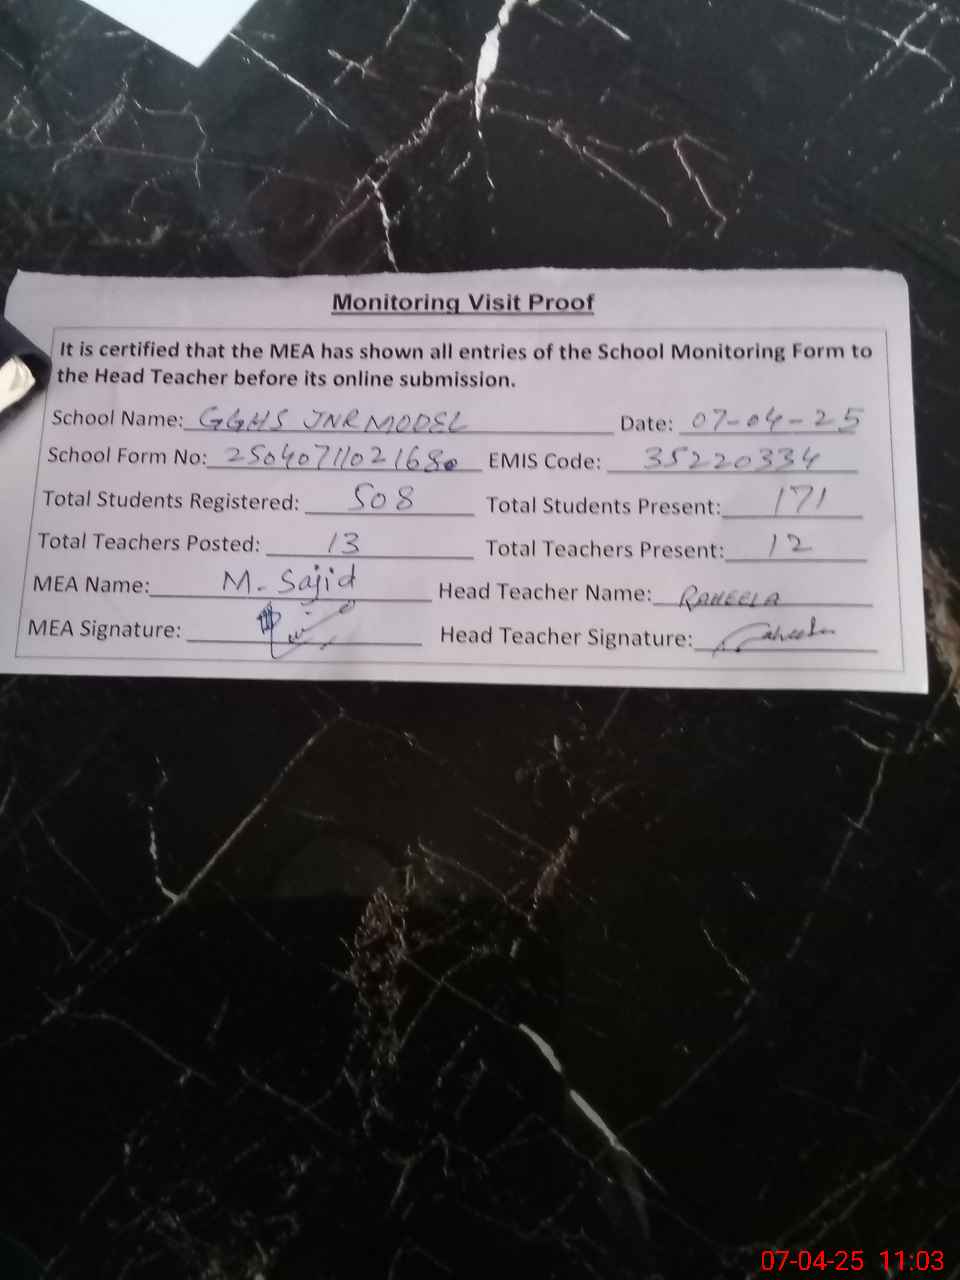 Monitoring Visit Proof
It is certified that the MEA has shown all entries of the School Monitoring Form to
the Head Teacher before its online submission.
School Name: GGHS JNR MODEL Date: 07-04-25
School Form No: 25040711021680 EMIS Code: 35220334
Total Students Registered: 508 Total Students Present: 171
Total Teachers Posted: 13 Total Teachers Present: 12
MEA Name: M. Sajid Head Teacher Name: RAHEELA
MEA Signature: Head Teacher Signature: Raheela
07-04-25 11:03